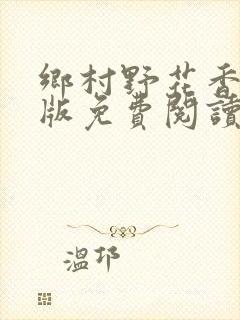 鄉村野花香
版免費閱讀
溫邘